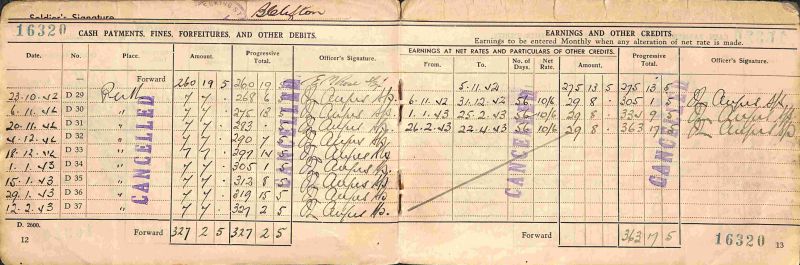 Soldier's Signature
B Clifton
16320 CASH PAYMENTS, FINES, FORFEITURES, AND OTHER DEBITS.
Date. No. Place. Amount. Progressive Total. Officer's Signature.
Forward 260 19 5 260 19 5
23.10.42 D 29 Perth 7 7 . 268 6 5
6.11.42 D 30 " 7 7 . 275 13 5
20.11.42 D 31 " 7 7 . 283 . 5
4.12.42 D 32 " 7 7 . 290 7 5
18.12.42 D 33 " 7 7 . 297 14 5
1.1.43 D 34 " 7 7 . 305 1 5
15.1.43 D 35 " 7 7 . 312 8 5
29.1.43 D 36 " 7 7 . 319 15 5
12.2.43 D 37 " 7 7 . 327 2 5
CANCELLED
CANCELLED
D. 2600.
12 Forward 327 2 5 327 2 5
EARNINGS AND OTHER CREDITS.
Earnings to be entered Monthly when any alteration of net rate is made.
EARNINGS AT NET RATES AND PARTICULARS OF OTHER CREDITS.
From. To. No. of Days. Net Rate. Amount. Progressive Total. Officer's Signature.
5.11.42 275 13 5 275 13 5
6.11.42 31.12.42 56 10/6 29 8 . 305 1 5
1.1.43 25.2.43 56 10/6 29 8 . 334 9 5
26.2.43 22.4.43 56 10/6 29 8 . 363 17 5
CANCELLED
CANCELLED
Forward 363 17 5
16320 13